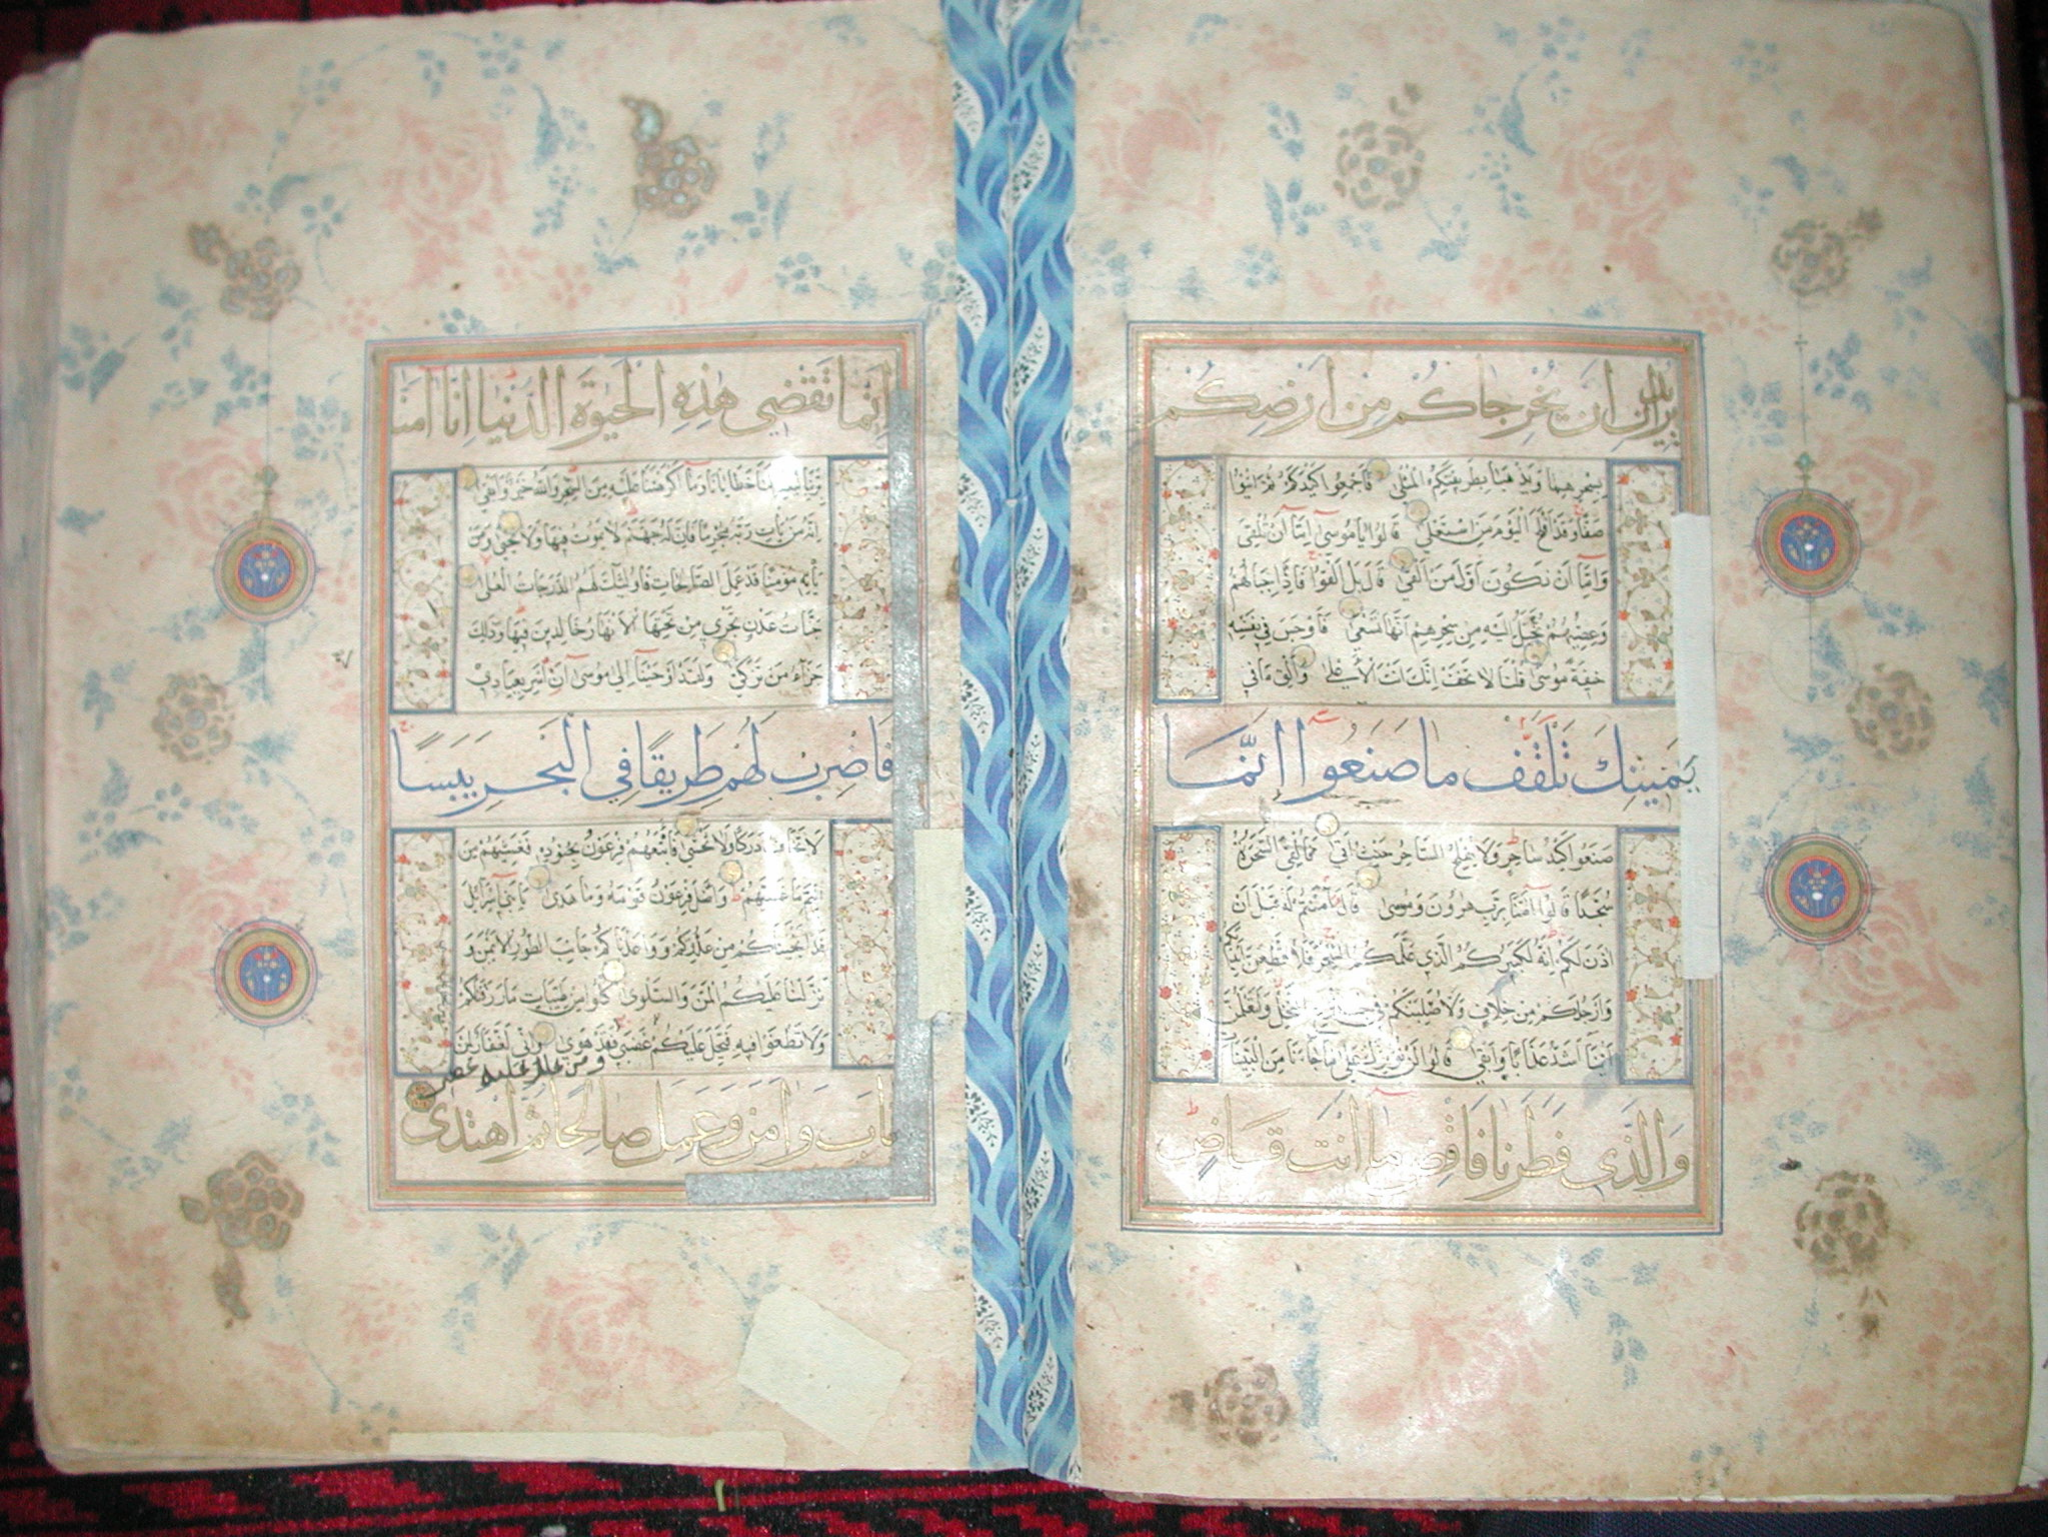 يريدان ان يخرجاكم من ارضكم
بسحرهما ويذهبا بطريقتكم المثلى فاجمعوا كيدكم ثم ائتوا
صفا وقد افلح اليوم من استعلى قالوا ياموسى اما ان تلقى
واما ان نكون اول من القى قال بل القوا فاذا حبالهم
وعصيهم يخيل اليه من سحرهم انها تسعى فاوجس في نفسه
خيفة موسى قلنا لا تخف انك انت الاعلى والق ما في
يمينك تلقف ما صنعوا انما
صنعوا كيد ساحر ولا يفلح الساحر حيث اتى فالقي السحرة
سجدا قالوا امنا برب هرون وموسى قال امنتم له قبل ان
اذن لكم انه لكبيركم الذي علمكم السحر فلاقطعن ايديكم
وارجلكم من خلاف ولاصلبنكم في جذوع النخل ولتعلمن
اينا اشد عذابا وابقى قالوا لن نؤثرك على ما جاءنا من البينات
والذي فطرنا فاقض ما انت قاض
انما تقضي هذه الحيوة الدنيا انا امنا
بربنا ليغفر لنا خطايانا وما اكرهتنا عليه من السحر والله خير وابقى
انه من يات ربه مجرما فان له جهنم لا يموت فيها ولا يحيى ومن
ياته مؤمنا قد عمل الصالحات فاولئك لهم الدرجات العلى
جنات عدن تجري من تحتها الانهار خالدين فيها وذلك
جزاء من تزكى ولقد اوحينا الى موسى ان اسر بعبادي
فاضرب لهم طريقا في البحر يبسا
لا تخاف دركا ولا تخشى فاتبعهم فرعون بجنوده فغشيهم من
اليم ما غشيهم واضل فرعون قومه وما هدى يا بني اسرائيل
قد انجيناكم من عدوكم وواعدناكم جانب الطور الايمن و
نزلنا عليكم المن والسلوى كلوا من طيبات ما رزقناكم
ولا تطغوا فيه فيحل عليكم غضبي فقد هوى واني لغفار لمن
ومن يحلل عليه غضبي
تاب وامن وعمل صالحا ثم اهتدى